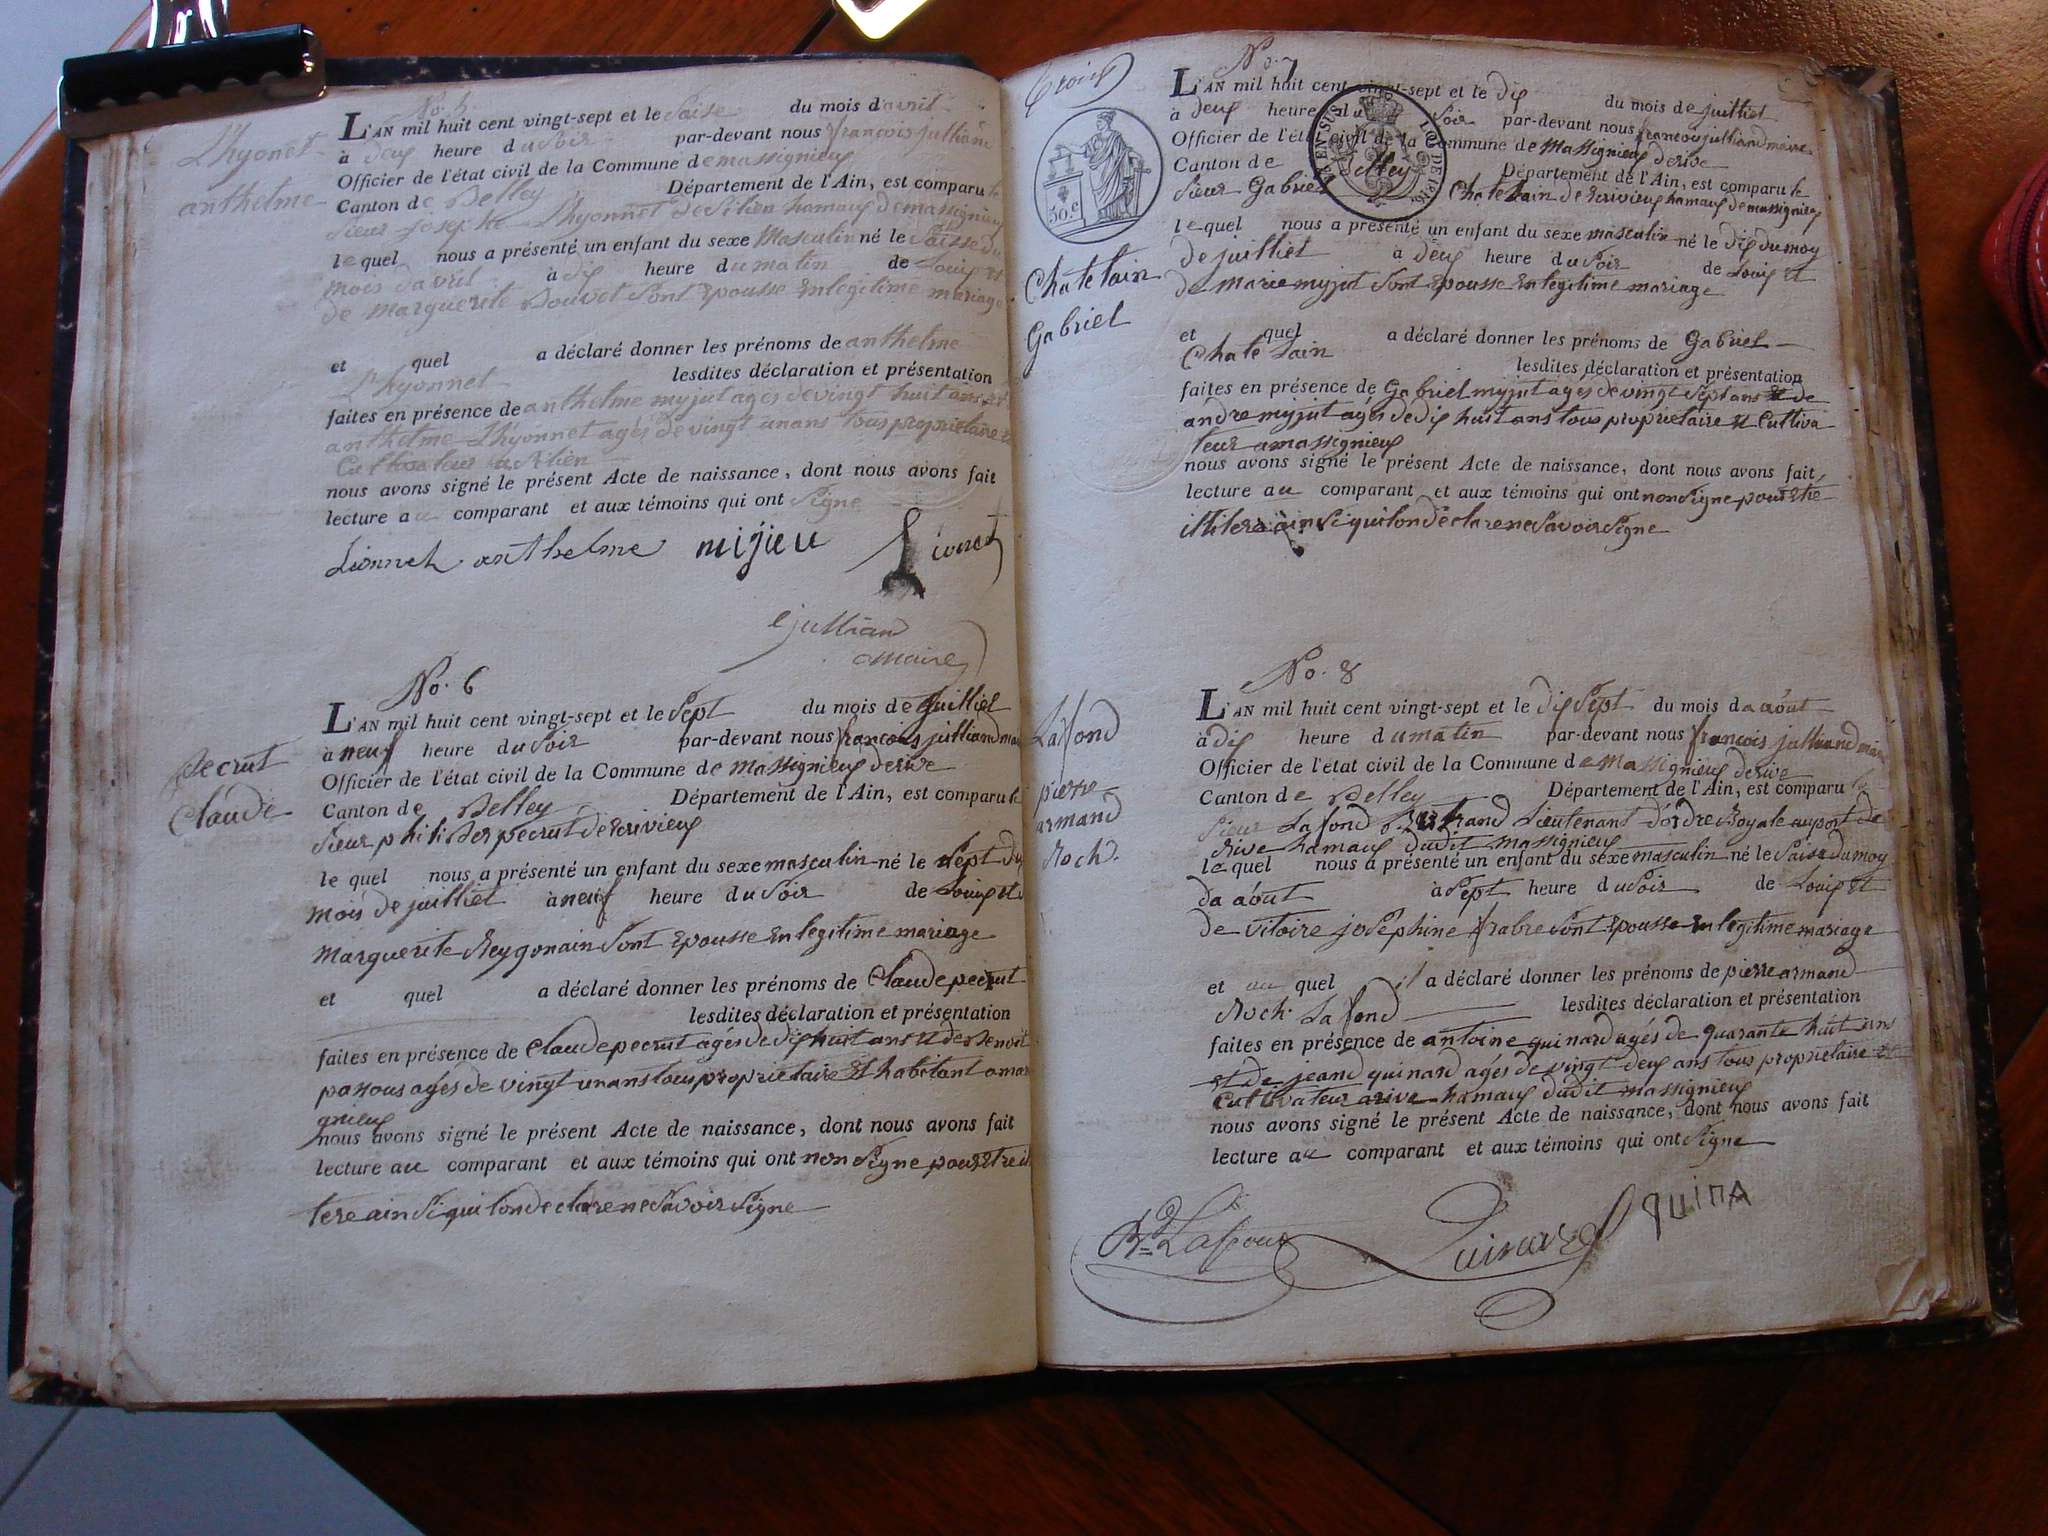 No. 5.
L'hyonet
anthelme
L'AN mil huit cent vingt-sept et le Saise du mois d'avril
à deux heure du Soir par-devant nous françois julliand
Officier de l'état civil de la Commune de massignieux
Canton de Belley Département de l'Ain, est comparu le
Sieur joseph L'hyonnet de Silien hamaux de massignieux
lequel nous a présenté un enfant du sexe Masculin né le Saisse du
mois d'avril à dix heure du matin de Louis et
de marguerite Bouvet Sont Epousse En legitime mariage
et quel a déclaré donner les prénoms de anthelme
L'hyonnet lesdites déclaration et présentation
faites en présence de anthelme myjut agés de vingt huit ans et
anthelme L'hyonnet agés de vingt un ans tous proprietaire
Cultivateur a Silien
nous avons signé le présent Acte de naissance, dont nous avons fait
lecture au comparant et aux témoins qui ont Signe
Lionnet anthelme mijieu Lionnet
jullian
maire
No. 6
pecrut
Claude
L'AN mil huit cent vingt-sept et le Sept du mois de juilliet
à neuf heure du Soir par-devant nous françois julliand
Officier de l'état civil de la Commune de massignieux derive
Canton de Belley Département de l'Ain, est comparu le
Sieur philiber pecrut de Ecrivieux
lequel nous a présenté un enfant du sexe masculin né le Sept du
mois de juilliet à neuf heure du Soir de Louis et
marguerite Reygonain Sont Epousse En legitime mariage
et quel a déclaré donner les prénoms de Claude pecrut
lesdites déclaration et présentation
faites en présence de Claude pecrut agés de dix huit ans et de Benoit
agés de vingt un ans tous proprietaire Et habitant a mas
gnieux
nous avons signé le présent Acte de naissance, dont nous avons fait
lecture au comparant et aux témoins qui ont non Signe pour Etre il
tere ain Si qui lon declare ne Savoir Signe
Troix
No. 7
50.c
Chatelain
Gabriel
L'AN mil huit cent vingt-sept et le dix du mois de juilliet
à deux heure du Soir par-devant nous francois julliand maire
Officier de l'état civil de la Commune de Massignieux derive
Canton de Belley Département de l'Ain, est comparu le
Sieur Gabriel Chatelain de Ecrivieux hamaux de massignieux
lequel nous a présenté un enfant du sexe masculin né le dix du moy
de juilliet à deux heure du Soir de Louis et
de marie myjut Sont Epousse En legitime mariage
et quel a déclaré donner les prénoms de Gabriel
Chatelain lesdites déclaration et présentation
faites en présence de Gabriel myjut agés de vingt Sept ans Et de
andre myjut agés de dix huit ans tous proprietaire Et Cultiva
teur a massignieux
nous avons signé le présent Acte de naissance, dont nous avons fait
lecture au comparant et aux témoins qui ont non Signe pour Etre
illitere ain Si qui lon déclare ne Savoir Signe
No. 8
Laffond
pierre
armand
Roch.
L'AN mil huit cent vingt-sept et le dix Sept du mois d'aóut
à dix heure du matin par-devant nous françois julliand
Officier de l'état civil de la Commune de Massignieux derive
Canton de Belley Département de l'Ain, est comparu le
Sieur Lafond Bertrand Lieutenant d'ordre Royale au port de
Rive hamaux dudit massignieux
lequel nous a présenté un enfant du sexe masculin né le Saise du moy
da aóut à Sept heure du Soir de Louis et
de vitoire joséphine frabre Sont Epousse En legitime mariage
et au quel il a déclaré donner les prénoms de pierre armand
Roch Lafond lesdites déclaration et présentation
faites en présence de antoine quinard agés de quarante huit ans
et de jeand quinard agés de vingt deux ans tous proprietaire et
Cultivateur a rive hamaux dudit massignieux
nous avons signé le présent Acte de naissance, dont nous avons fait
lecture au comparant et aux témoins qui ont Signe
Bd Laffond Quinard QUINA